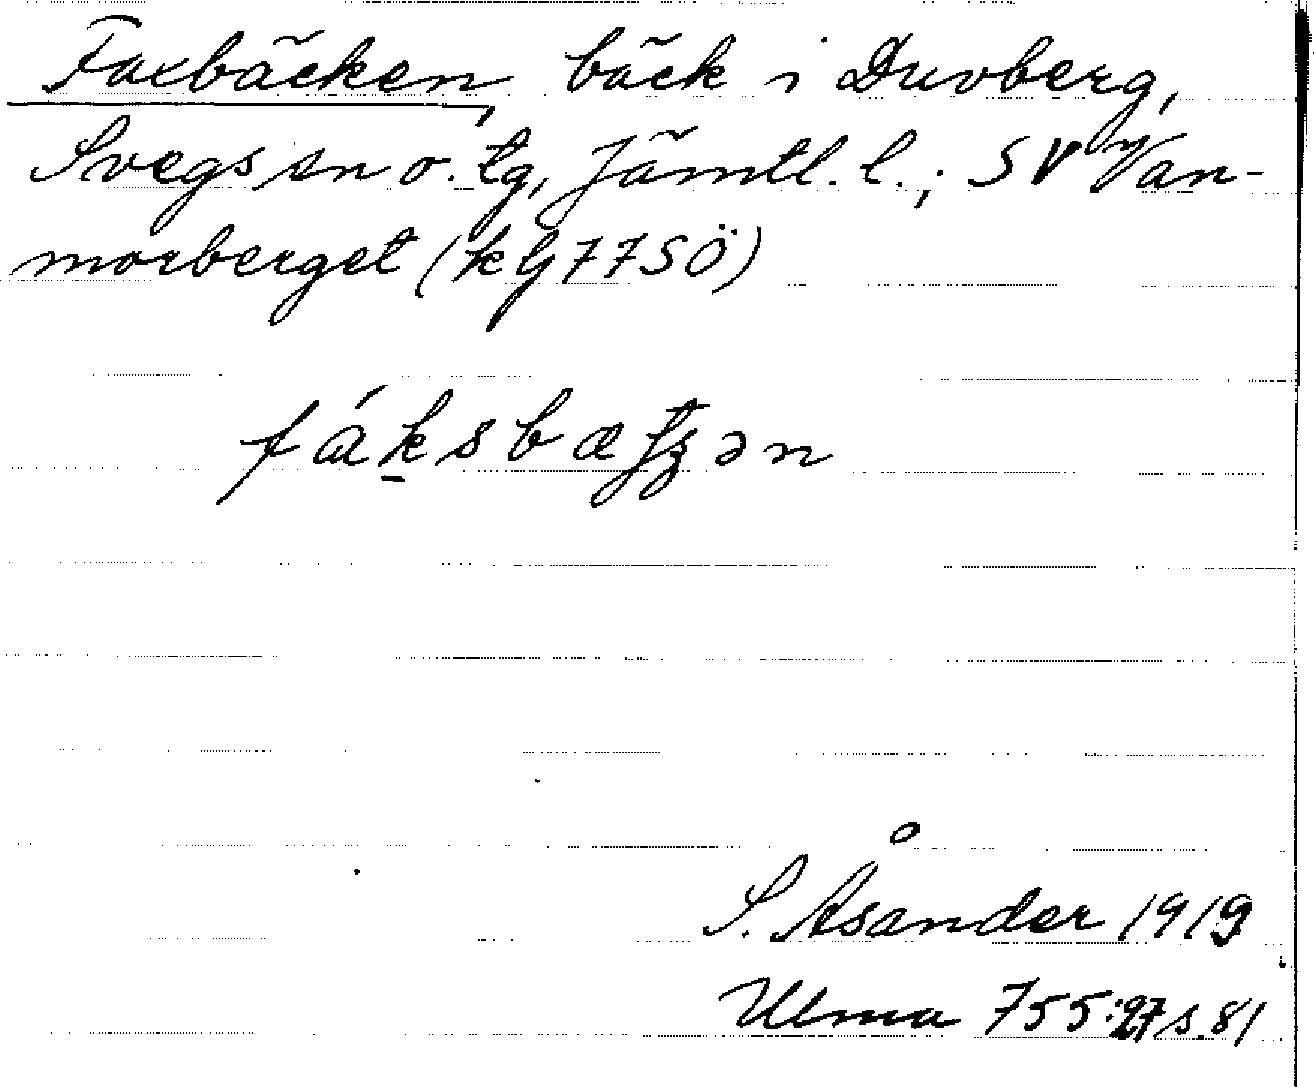 Faxbäcken, bäck i Duvberg,
Svegs sn o. tg, Jämtl. l.; SV Van-
morberget (kbl 77 SÖ)
fáksbæʈʂən
S. Åsander 1919
Ulma 755:27 s. 81